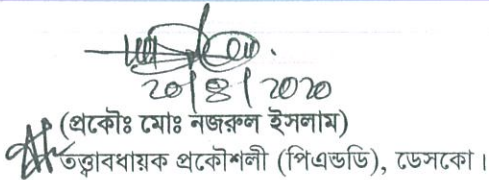 20/8/2020
(প্রকৌঃ মোঃ নজরুল ইসলাম)
তত্ত্বাবধায়ক প্রকৌশলী (পিএন্ডডি), ডেসকো।